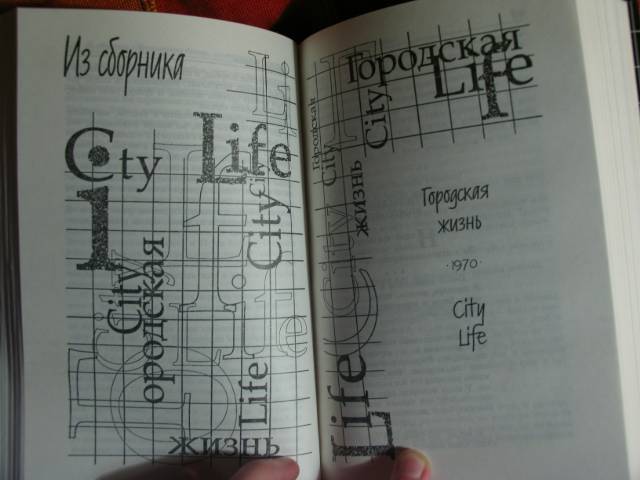 Из сборника
City
Life
City
Городская
City
Life
жизнь
Городская
Life
City
Городская
City
жизнь
City
Life
Городская
жизнь
·1970·
City
Life